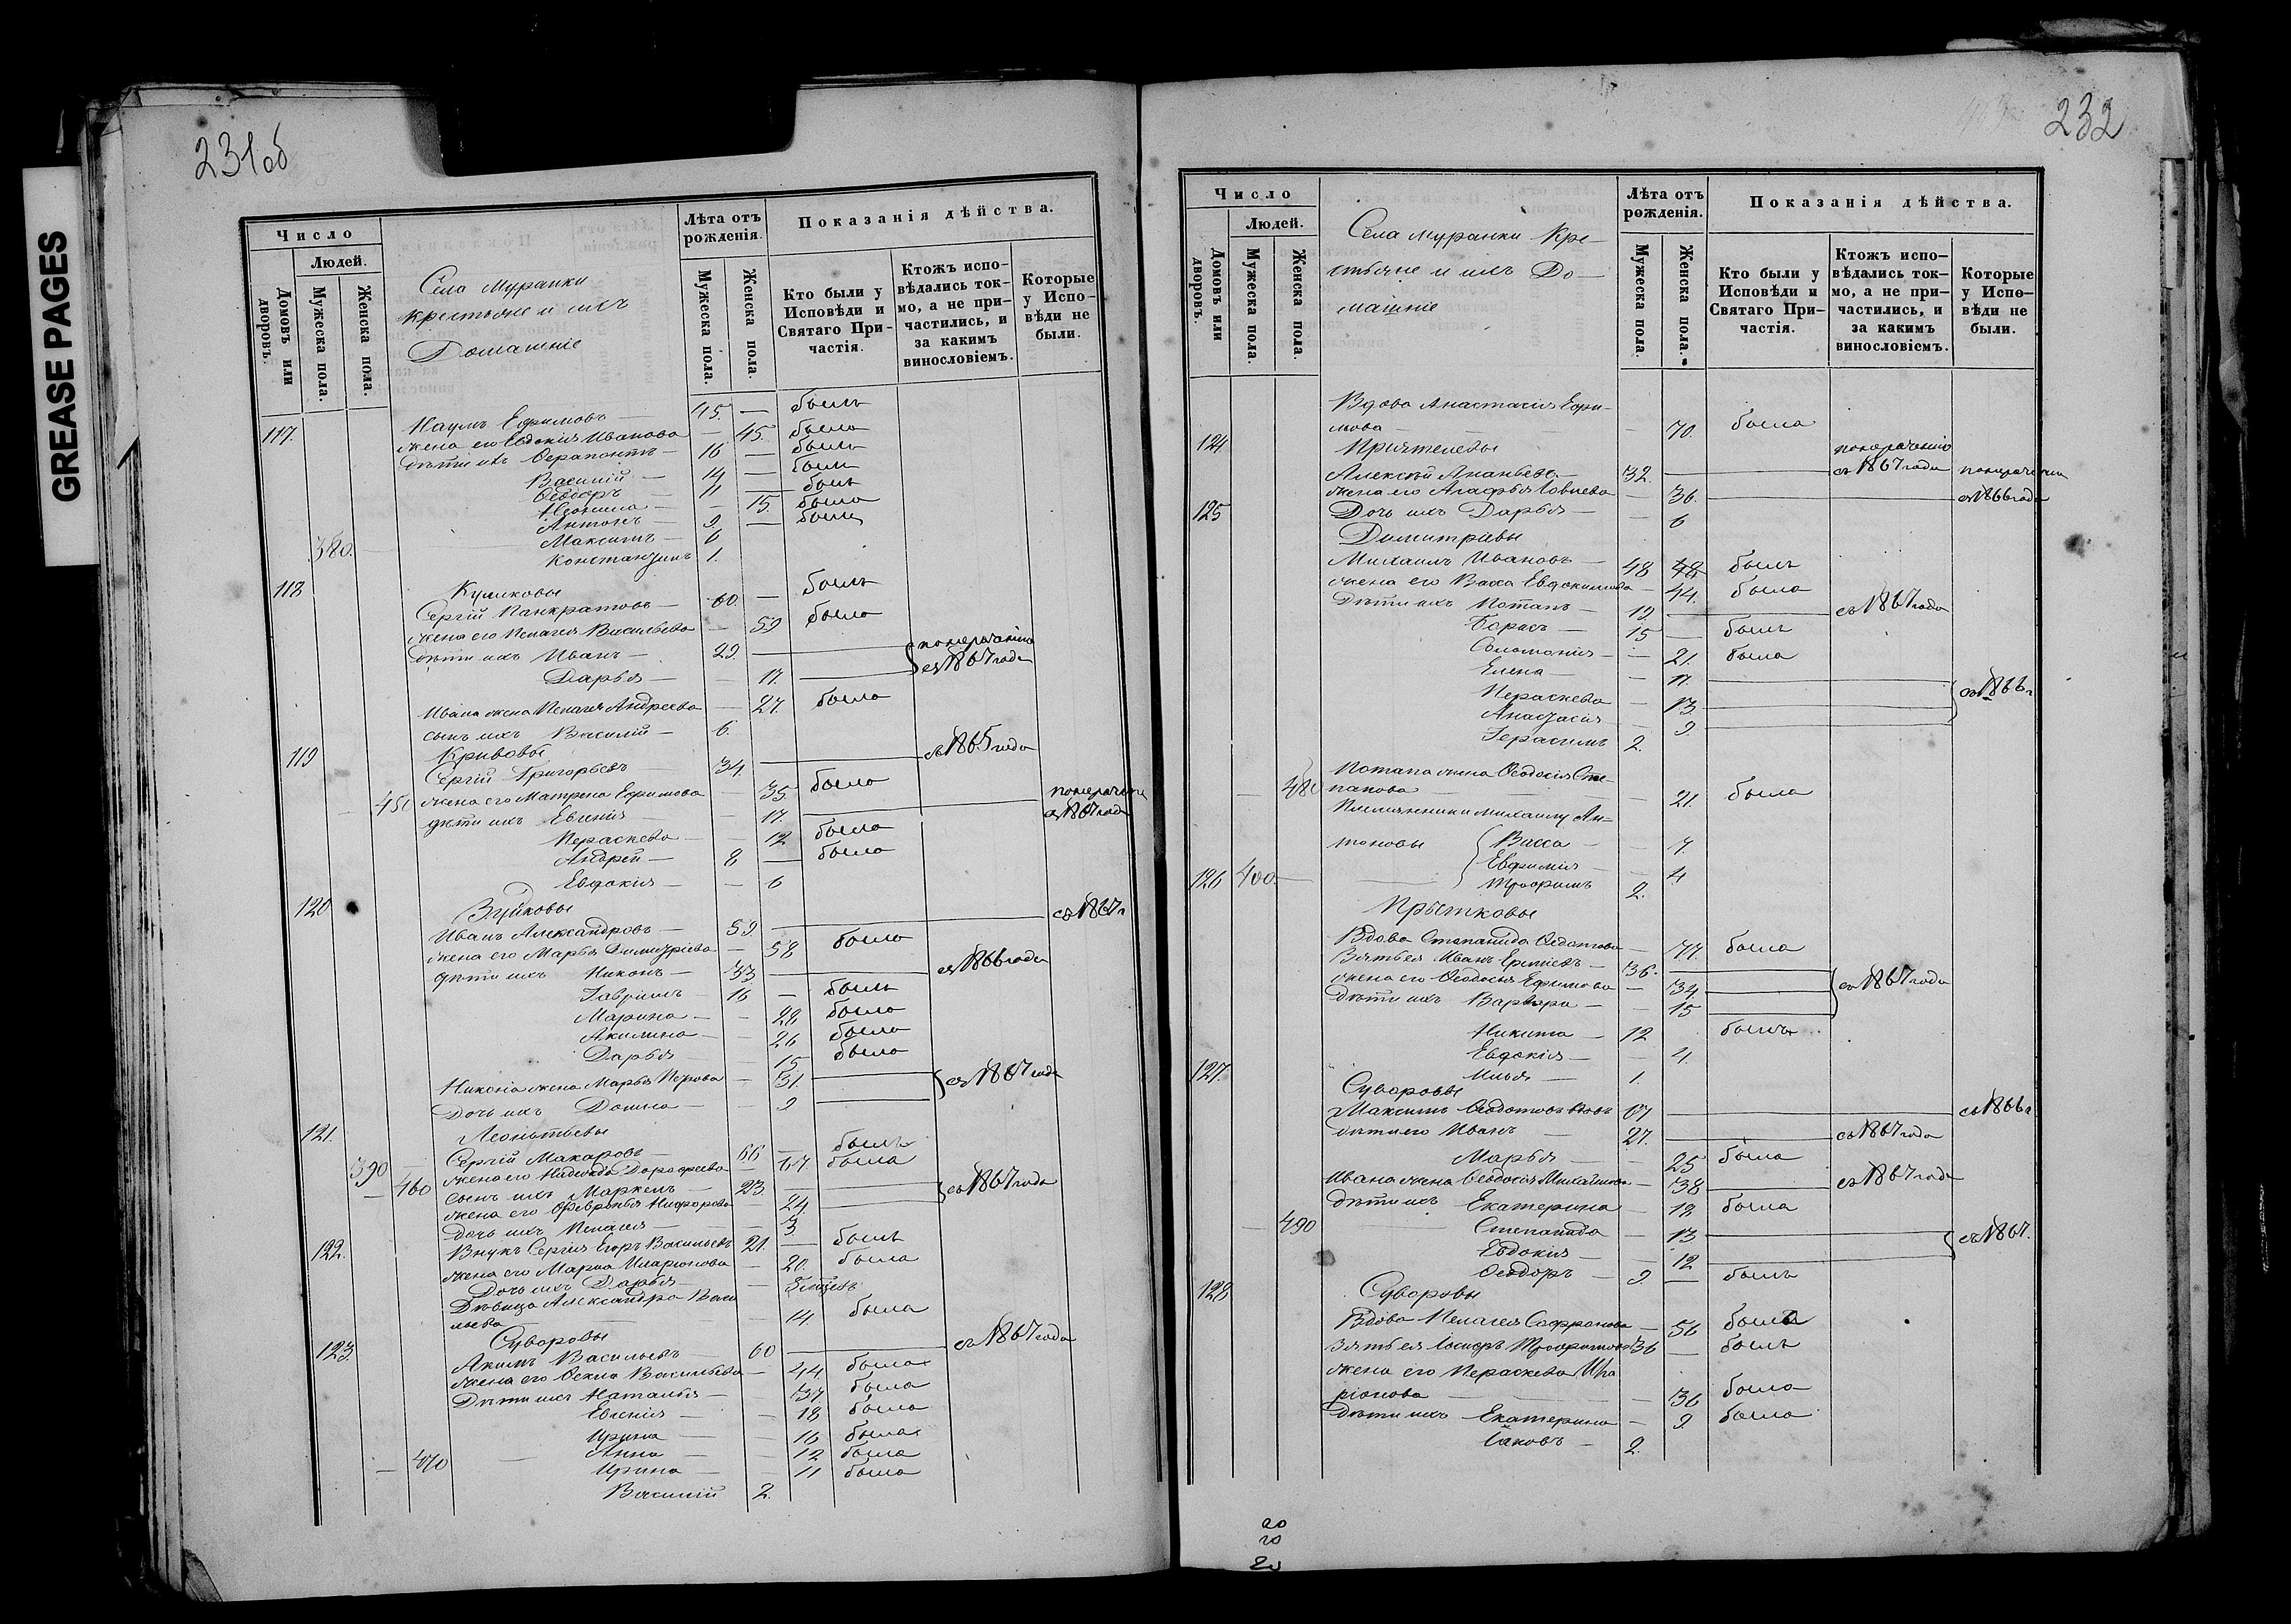 GREASE PAGES
231об
Число
Людей.
Домовъ или дворовъ.
Мужеска пола.
Женска пола.
Села Муранки
крестьяне и ихъ
Домашніе
Лѣта отъ рожденія.
Мужеска пола.
Женска пола.
Показанія дѣйства.
Кто были у Исповѣди и Святаго Причастія.
Ктожъ исповѣдались токмо, а не причастились, и за какимъ винословіемъ.
Которые у Исповѣди не были.
117. Наумъ Ефимовъ — 45. — былъ
жена его Евдокія Иванова — 45. была
дѣти ихъ Ферапонтъ — 16 — былъ
Василій — 14 — былъ
Ѳеодоръ — 11 — былъ
— 15 была
Антонъ — 9 — былъ
380. Максимъ — 6
Константинъ 1.
118 Куликовы
Сергій Панкратовъ — 60. — былъ
жена его Пелагея Васильева — 59 была
дѣти ихъ Иванъ — 29. — понераченію
Дарья — 17. — съ 1867 года
Ивана жена Пелагея Андреева — 27. была
сынъ ихъ Василій — 6.
119 Кривовы
Сергій Григорьевъ 34. — съ 1865 года
450 жена его Матрена Ефимова — 35. была
дѣти ихъ Евгенія — 17. — понераченію съ 1867 года
Пераскева — 12 была
Андрей — 8 — была
Евдокія — 6
120 Зуйковы
Иванъ Александровъ — 59. — съ 1867 г
жена его Марья Димитріева — 58 была
дѣти ихъ Никонъ — 33. — съ 1866 года
Гавріилъ — 16 — былъ
Марина — 28 была
Акилина — 26 была
Дарья — 15 была
Никона жена Марья Петрова — 31. — съ 1867 года
Дочь ихъ Домна — 9
121. Леонтьевы
Сергій Макаровъ — 66 — былъ
390 жена его Надежда Дорофеева — 67. была
460 сынъ ихъ Маркелъ — 23. — съ 1867 года
жена его Февронья Никифорова — 24
дочь ихъ Пелагея — 3
122. Внукъ Сергія Егоръ Васильевъ 21. — былъ
жена его Марья Иларіонова — 20. была
Дочь ихъ Дарья — 5 мѣсяц.
Дѣвица Александра Васильева — 14. была
123. Суворовы
Акимъ Васильевъ 60 — съ 1867 года
жена его Ѳекла Васильева — 44 была
Дѣти ихъ Наталья — 37. была
Евгенія — 18 была
Ирина — 16 была
Анна — 12 была
470 Ирина — 11 была
Василій 2.
232
Число
Людей.
Домовъ или дворовъ.
Мужеска пола.
Женска пола.
Села Муранки Кре-
стьяне и ихъ До-
машніе
Лѣта отъ рожденія.
Мужеска пола.
Женска пола.
Показанія дѣйства.
Кто были у Исповѣди и Святаго Причастія.
Ктожъ исповѣдались токмо, а не причастились, и за какимъ винословіемъ.
Которые у Исповѣди не были.
Вдова Анастасія Ефи-
мова — 70. была
124. Пріятелевы
Алексѣй Ананьевъ — 32. — понераченію съ 1867 года
жена его Агафья Іовлева — 36. — понераченію съ 1866 года
125 Дочь ихъ Дарья — 6
Димитріевы
Михаилъ Ивановъ — 48 48 былъ
жена его Васса Евдокимова — 44. была
Дѣти ихъ Потапъ — 19. — съ 1867 года
Борисъ — 15 — былъ
Соломонія — 21. была
Елена — 17.
Пераскева — 13. — съ 1866 г
Анастасія — 9
Герасимъ 2.
Потапа жена Ѳеодосія Сте-
480 панова — 21. была
Племянники Михаилу Ан-
тоновы Васса — 7
Евфимія — 4
126 400. Трофимъ 2.
Прытковы
Вдова Степанида Ѳедотова — 77. была
Зятья Иванъ Еремѣевъ — 36.
жена его Ѳеодосія Ефимова — 34. — съ 1867 года
Дѣти ихъ Варвара — 15
Никита — 12 былъ
Евдокія — 4.
127. Илья — 1.
Суворовы
Максимъ Ѳедотовъ вдовъ 67 — съ 1866 г
дѣти его Иванъ — 27. — съ 1867 года
Марья — 25 была
Ивана жена Ѳеодосія Михайлова — 38 — съ 1867 года
дѣти ихъ Екатерина — 18 была
490 Степанида — 13 — съ 1867.
Евдокія — 12
Ѳеодоръ — 9. — былъ
128 Суворовы
Вдова Пелагея Сафронова — 56 была
Зять ея Іосифъ Трофимовъ 36 — былъ
жена его Пераскева Ила
ріонова — 36 была
Дѣти ихъ Екатерина — 9. была
Іаковъ — 2.
20
20